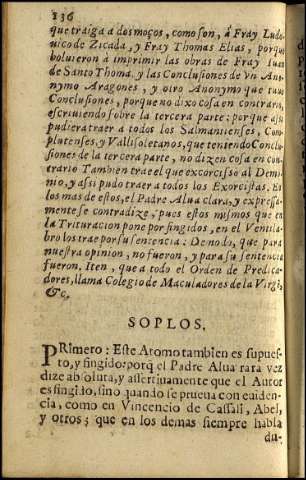 136
que traiga a dos moços, como son, à Fray Ludo
uico de Zicada, y Fray Thomas Elias, porque
boluieron à imprimir las obras de Fray Iuan
de Santo Thoma, y las Conclusiones de Vn Ano-
nymo Aragones, y otro Anonymo que tuuo
Conclusiones, porque no dixo cosa en contrario,
escriuiendo sobre la tercera parte: porque assi
pudiera traer a todos los Salmanticenses, Com-
plutenses, y Vallisoletanos, que teniendo Conclu-
siones de la tercera parte, no dizen cosa en con-
trario Tambien trae el que exorcisso al Demo-
nio, y assi pudo traer a todos los Exorcistas. En
los mas de estos, el Padre Alua clara, y expressa-
mente se contradize, pues estos mismos que en
la Trituracion pone por fingidos, en el Ventila-
bro los trae por su sentencia: De modo, que para
nuestra opinion, no fueron, y para su sentencia
fueron. Iten, que a todo el Orden de Predica-
dores, llama Colegio de Maculadores de la Virgẽ,
&c.
SOPLOS.
PRimero: Este Atomo tambien es supues-
to, y fingido: porq̃ el Padre Alua rara vez
dize absoluta, y assertiuamente que el Autor
es fingido, sino quando se prueua con euiden-
cia, como en Vincencio de Cassali, Abel,
y otros; que en los demas siempre habla
du-